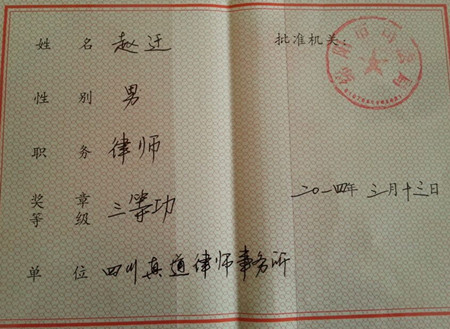 姓名 赵迁
批准机关：
性别 男
职务 律师
奖章等级 三等功
二〇一四年三月十三日
单位 四川真道律师事务所